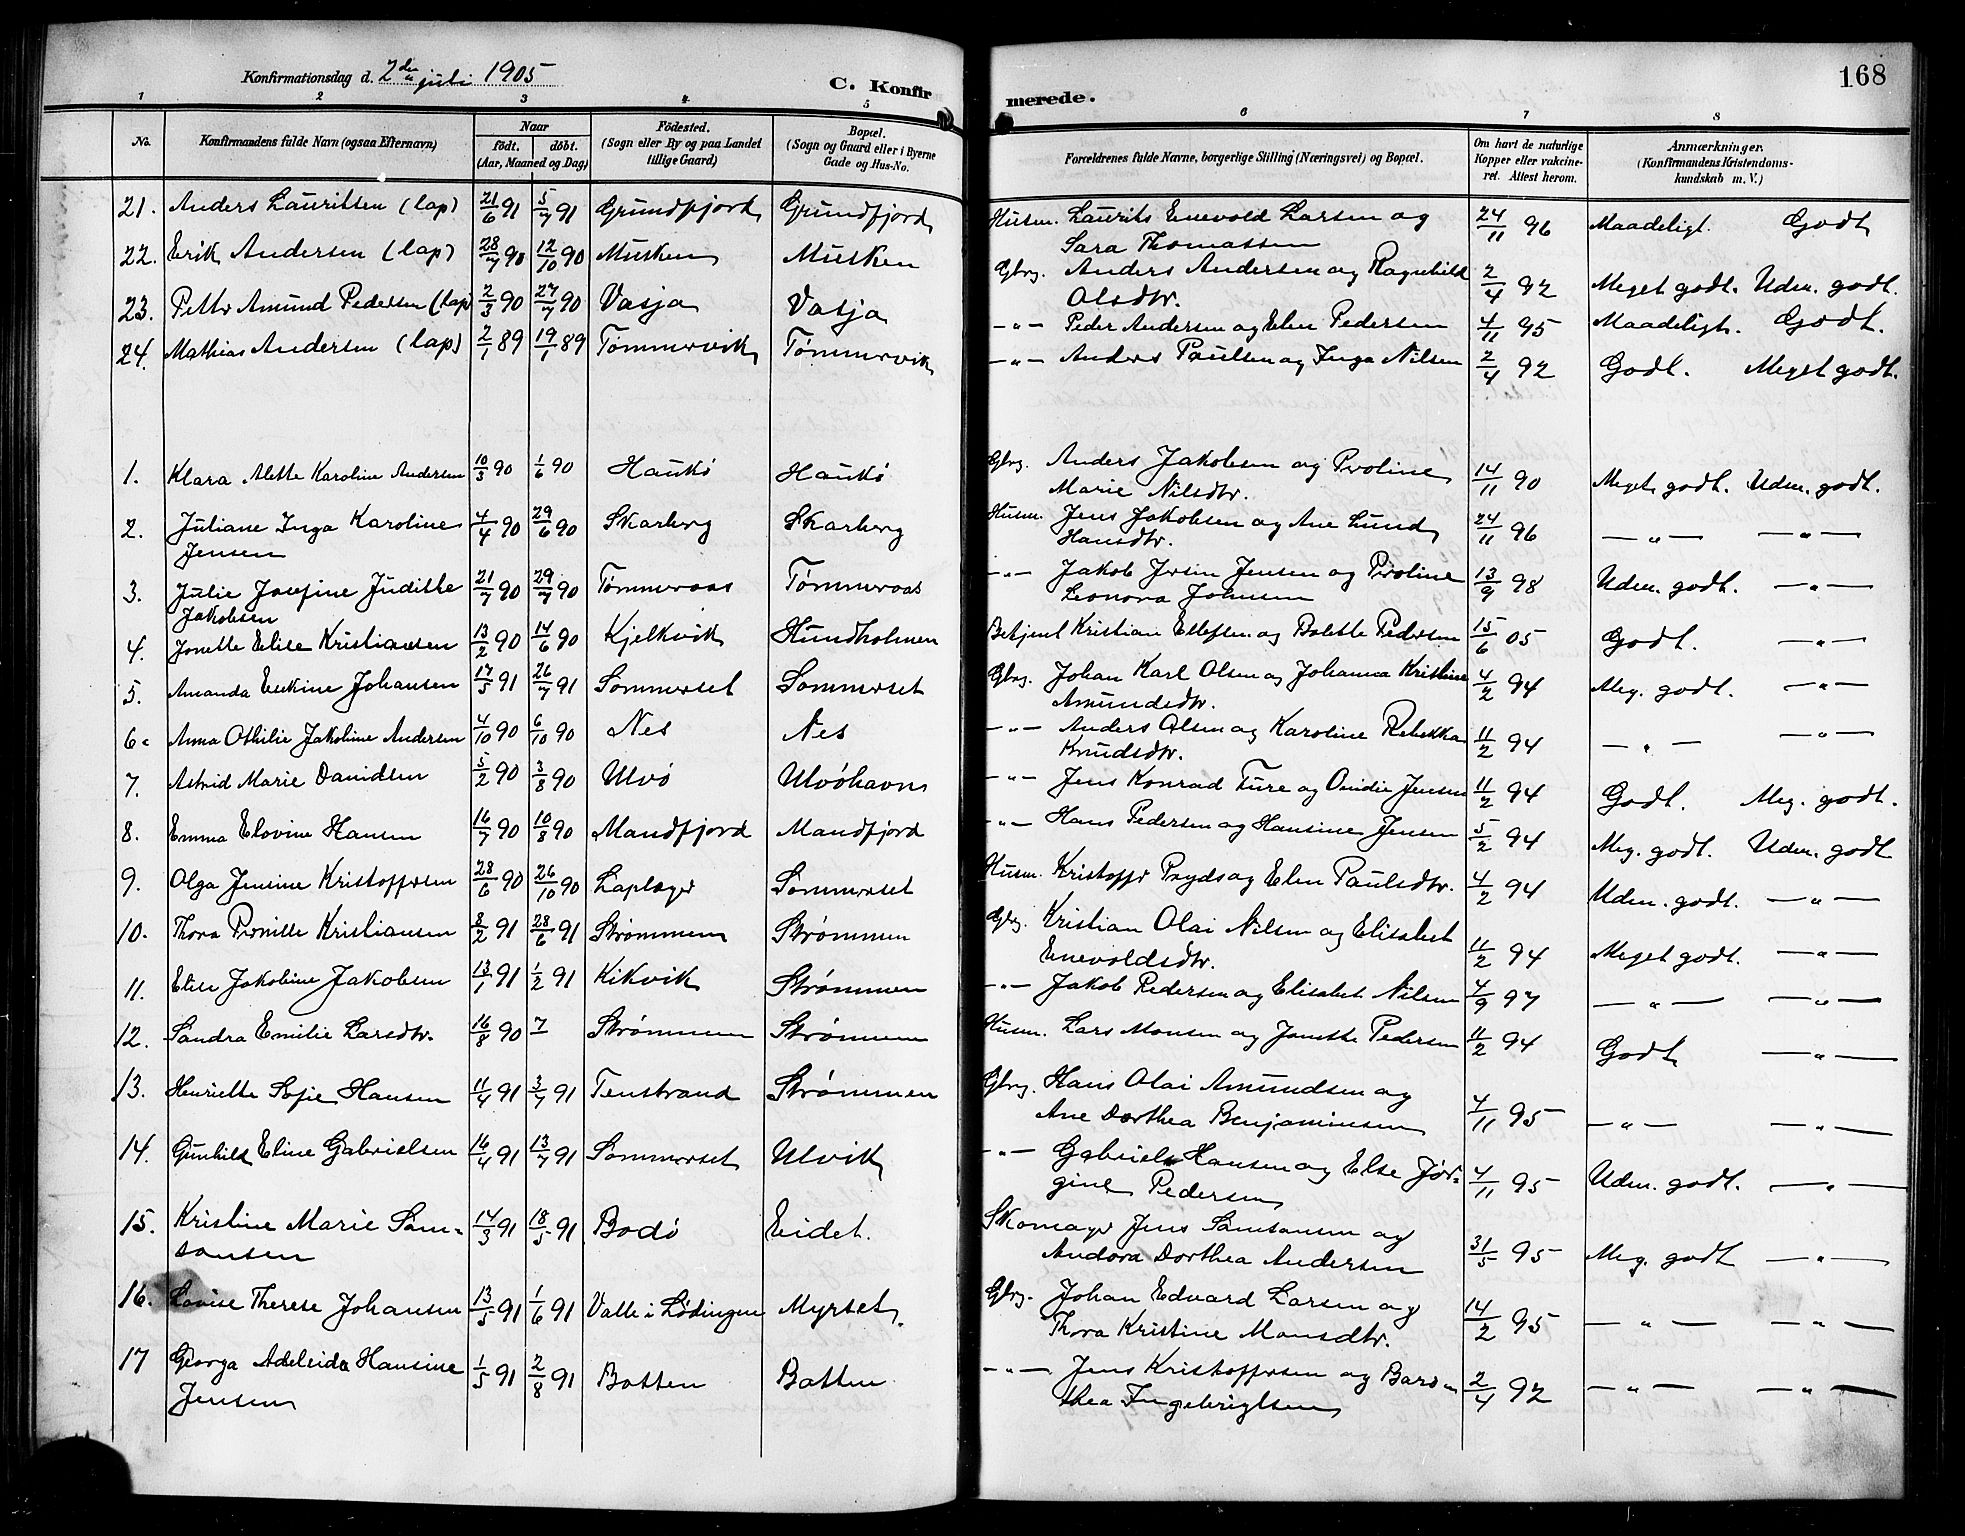 Konfirmationsdag d. 2den juli 1905
C. Konfirmerede.
168
1 2 3 4 5 6 7 8
No. Konfirmandens fulde Navn (ogsaa Efternavn) Naar födt. döbt. (Aar, Maaned og Dag) Födested. (Sogn eller By og paa Landet tillige Gaard) Bopæl. (Sogn og Gaard eller i Byerne Gade og Hus-No. Forældrenes fulde Navne, borgerlige Stilling (Næringsvei) og Bopæl. Om havt de naturlige Kopper eller vakcineret. Attest herom. Anmærkninger. (Konfirmandens Kristendomskundskab m. V.)
21. Anders Lauritsen (lap) 21/6 91 5/7 91 Grundfjord Grundfjord Husm. Laurits Enevold Larsen og Sara Thomassen 24/11 96 Maadeligt. Godt
22. Erik Andersen (lap) 28/7 90 12/10 90 Musken Musken Gbrg. Anders Andersen og Ragnhild Olsdtr. 2/4 92 Meget godt. Udm. godt.
23. Petter Amund Pedersen (lap) 2/3 90 27/7 90 Vasja Vasja -"- Peder Andersen og Elen Pedersen 4/11 95 Maadeligt. Godt.
24. Mathias Andersen (lap) 2/1 89 19/1 89 Tømmervik Tømmervik -"- Anders Paulsen og Inga Nilsen 2/4 92 Godt. Meget godt.
1. Klara Alette Karoline Andersen 10/3 90 1/6 90 Haukö Haukö Gbrg. Anders Jakobsen og Proline Marie Nilsdtr. 14/11 90 Meget godt. Udm. godt.
2. Juliane Inga Karoline Jensen 4/4 90 29/6 90 Skarberg Skarberg Husm. Jens Jakobsen og Ane Lund Hansdtr. 24/11 96 -"- -"-
3. Julie Josefine Judithe Jakobsen 21/7 90 29/7 90 Tømmeraas Tømmeraas -"- Jakob Jensen og Proline Leonora Johnsen 13/9 98 Udm. godt. -"-
4. Jonette Elise Kristiansen 13/2 90 14/6 90 Kjelkvik Hundholmen Betjent Kristian Ellefsen og Bolette Pedersen 15/6 05 Godt. -"-
5. Amanda Erikine Johansen 17/5 91 26/7 91 Sommerset Sommerset Gbrg. Johan Karl Olsen og Johanna Kristine Amundsdtr. 4/2 94 Meg. godt. -"-
6. Anna Othilie Jakobine Andersen 4/10 90 6/10 90 Nes Nes -"- Anders Olsen og Karoline Rebekka Knudsdtr. 11/2 94 -"- -"-
7. Astrid Marie Davidsen 5/2 90 3/8 90 Ulvö Ulvöhavn -"- Jens Konrad Ture og Ovidie Jensen 11/2 94 Godt. Meg. godt.
8. Emma Elovine Hansen 16/7 90 10/8 90 Mandfjord Mandfjord -"- Hans Pedersen og Hansine Jensen 5/2 94 Meg. godt. Udm. godt
9. Olga Jensine Kristoffersen 28/6 90 26/10 90 Laplæger Sommerset Husm. Kristoffer Pryds og Elen Paulsdtr. 4/2 94 Udm. godt. -"-
10. Thora Pernille Kristiansen 8/2 91 28/6 91 Strømmen Strømmen Gbrg. Kristian Olai Nilsen og Elisabet Enevoldsdtr. 11/2 94 Meget godt. -"-
11. Elise Jakobine Jakobsen 13/1 91 1/2 91 Kikvik Strømmen -"- Jakob Pedersen og Elisabet Nilsen 4/9 97 -"- -"-
12. Sandra Emilie Larsdtr. 16/8 90 7 Strømmen Strømmen Husm. Lars Monsen og Jonette Pedersen 11/2 94 Godt -"-
13. Henriette Sofie Hansen 11/4 91 3/7 91 Tenstrand Strømmen Gbrg. Hans Olai Amundsen og Ane Dorthea Benjaminsen 4/11 95 -"- -"-
14. Gunhild Eline Gabrielsen 16/4 91 13/7 91 Sommerset Ulvik -"- Gabriel Hansen og Else Jørgine Pedersen 4/11 95 Udm. godt. -"-
15. Kristine Marie Samsonsen 14/3 91 18/5 91 Bodö Eidet. Skomager Jens Samsonsen og Andora Dorthea Andersen 31/5 95 Meg. godt -"-
16. Lovise Therese Johansen 13/5 91 1/6 91 Valle i Lödingen Myrset. Gbrg. Johan Edvard Larsen og Thora Kristine Monsdtr. 14/2 95 -"- -"-
17 Georga Adeleida Hansine Jensen 1/5 91 2/8 91 Botten Botten -"- Jens Kristoffersen og Barothea Ingebrigtsen 2/4 92 -"- -"-